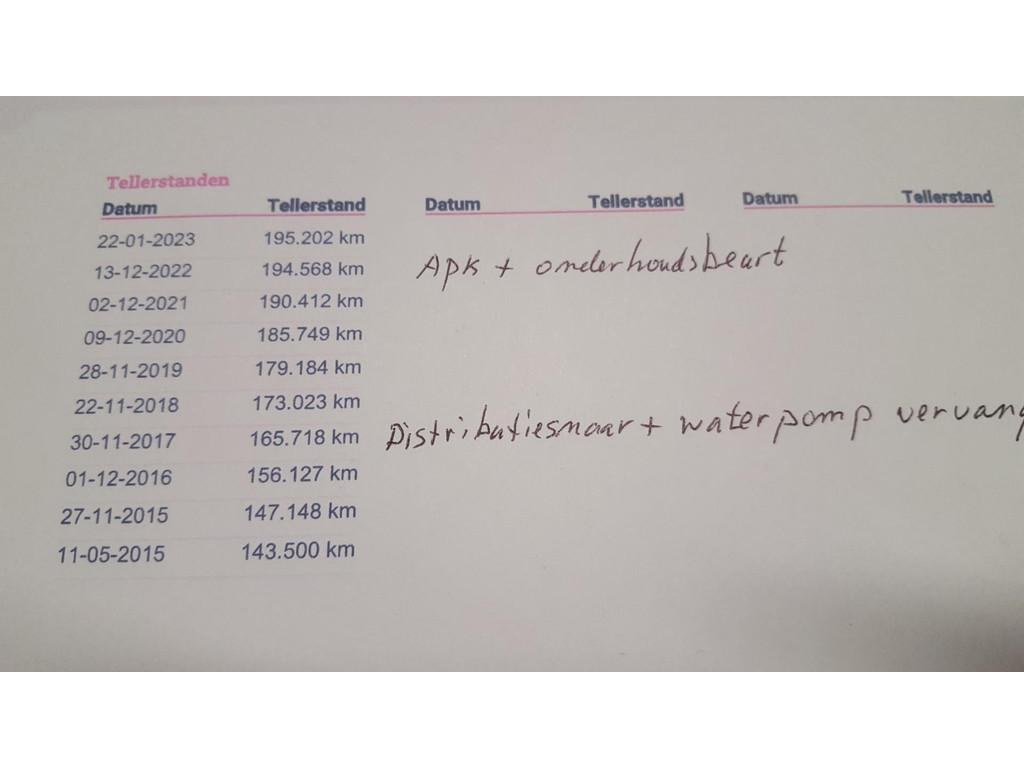 Tellerstanden
Datum Tellerstand Datum Tellerstand Datum Tellerstand
22-01-2023 195.202 km
13-12-2022 194.568 km Apk + onderhoudsbeurt
02-12-2021 190.412 km
09-12-2020 185.749 km
28-11-2019 179.184 km
22-11-2018 173.023 km
30-11-2017 165.718 km Distributiesnaar + waterpomp vervang
01-12-2016 156.127 km
27-11-2015 147.148 km
11-05-2015 143.500 km